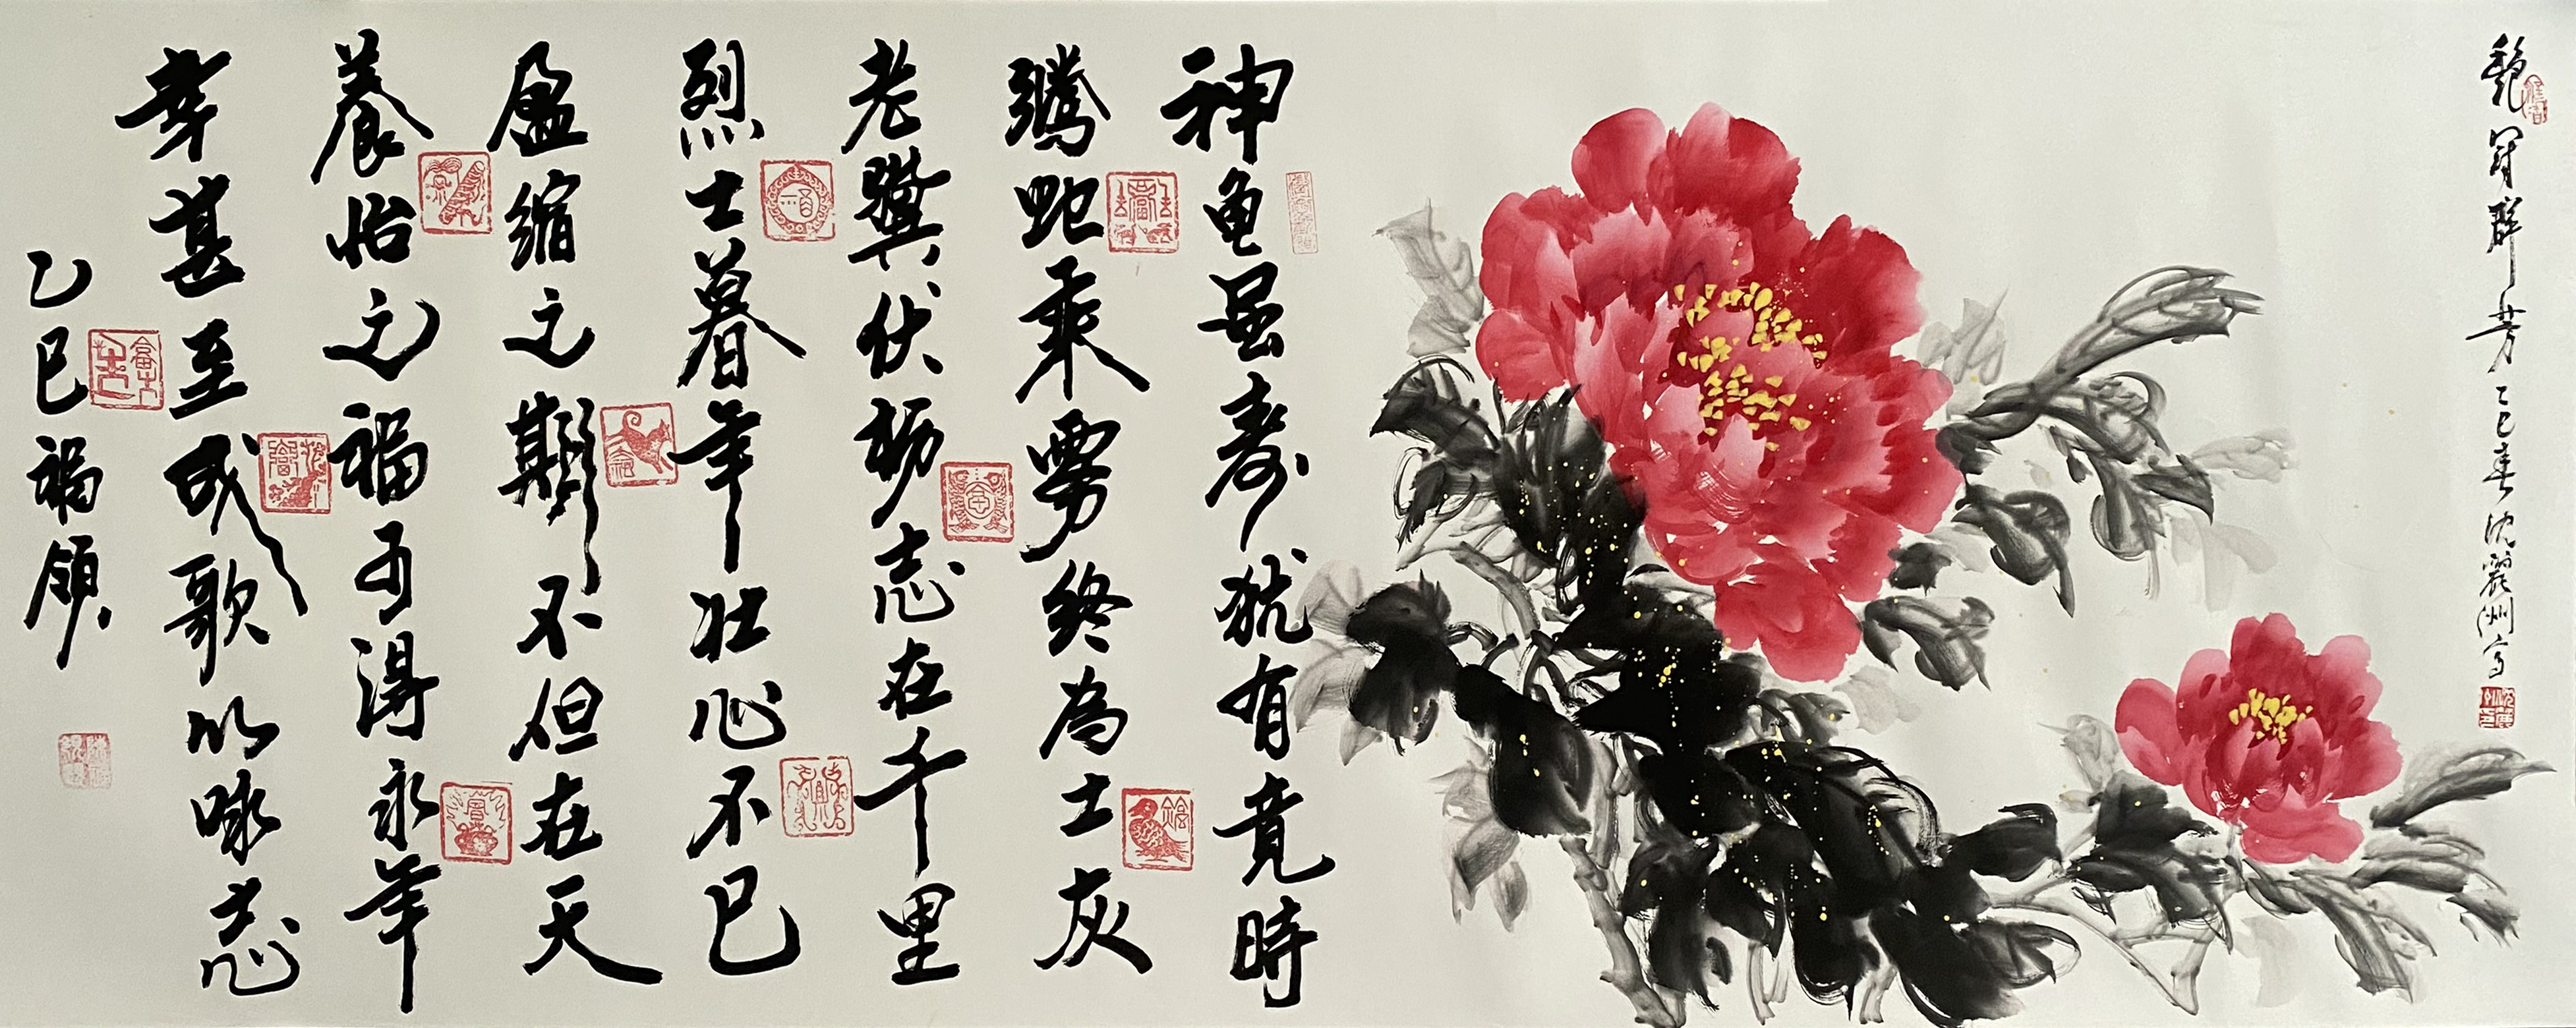 艷冠群芳 乙巳春 沈麗洲寫
神龟虽寿犹有竟時
騰虵乘雾終為土灰
老驥伏枥志在千里
烈士暮年壮心不已
盈縮之期不但在天
養怡之福可得永年
幸甚至哉歌以咏志
乙巳福領